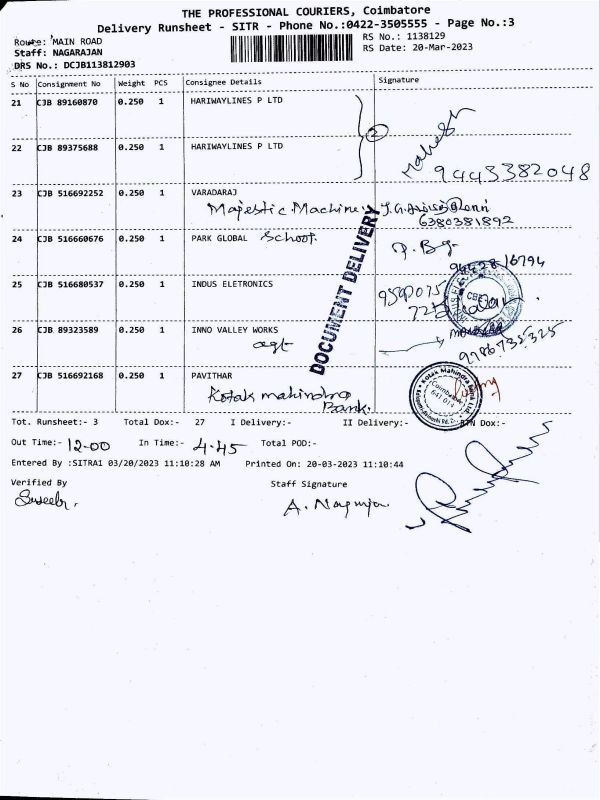 THE PROFESSIONAL COURIERS, Coimbatore
Delivery Runsheet - SITR - Phone No.:0422-3505555 - Page No.:3
Route: MAIN ROAD
Staff: NAGARAJAN
DRS No.: DCJB113812903
RS No.: 1138129
RS Date: 20-Mar-2023
S No Consignment No Weight PCS Consignee Details Signature
21 CJB 89160870 0.250 1 HARIWAYLINES P LTD
2
22 CJB 89375688 0.250 1 HARIWAYLINES P LTD
Mahesh
9443382048
23 CJB 516692252 0.250 1 VARADARAJ
Majestic Machine
6380381892
24 CJB 516660676 0.250 1 PARK GLOBAL School
DOCUMENT DELIVERY
25 CJB 516680537 0.250 1 INDUS ELETRONICS
26 CJB 89323589 0.250 1 INNO VALLEY WORKS
9786735325
27 CJB 516692168 0.250 1 PAVITHAR
Kotak mahindra
Bank.
Kotak Mahindra Bank Ltd.
Coimbatore
641 014
Tot. Runsheet:- 3 Total Dox:- 27 I Delivery:- II Delivery:- RTN Dox:-
Out Time:- 12-00 In Time:- 4.45 Total POD:-
Entered By :SITRA1 03/20/2023 11:10:28 AM Printed On: 20-03-2023 11:10:44
Verified By Staff Signature